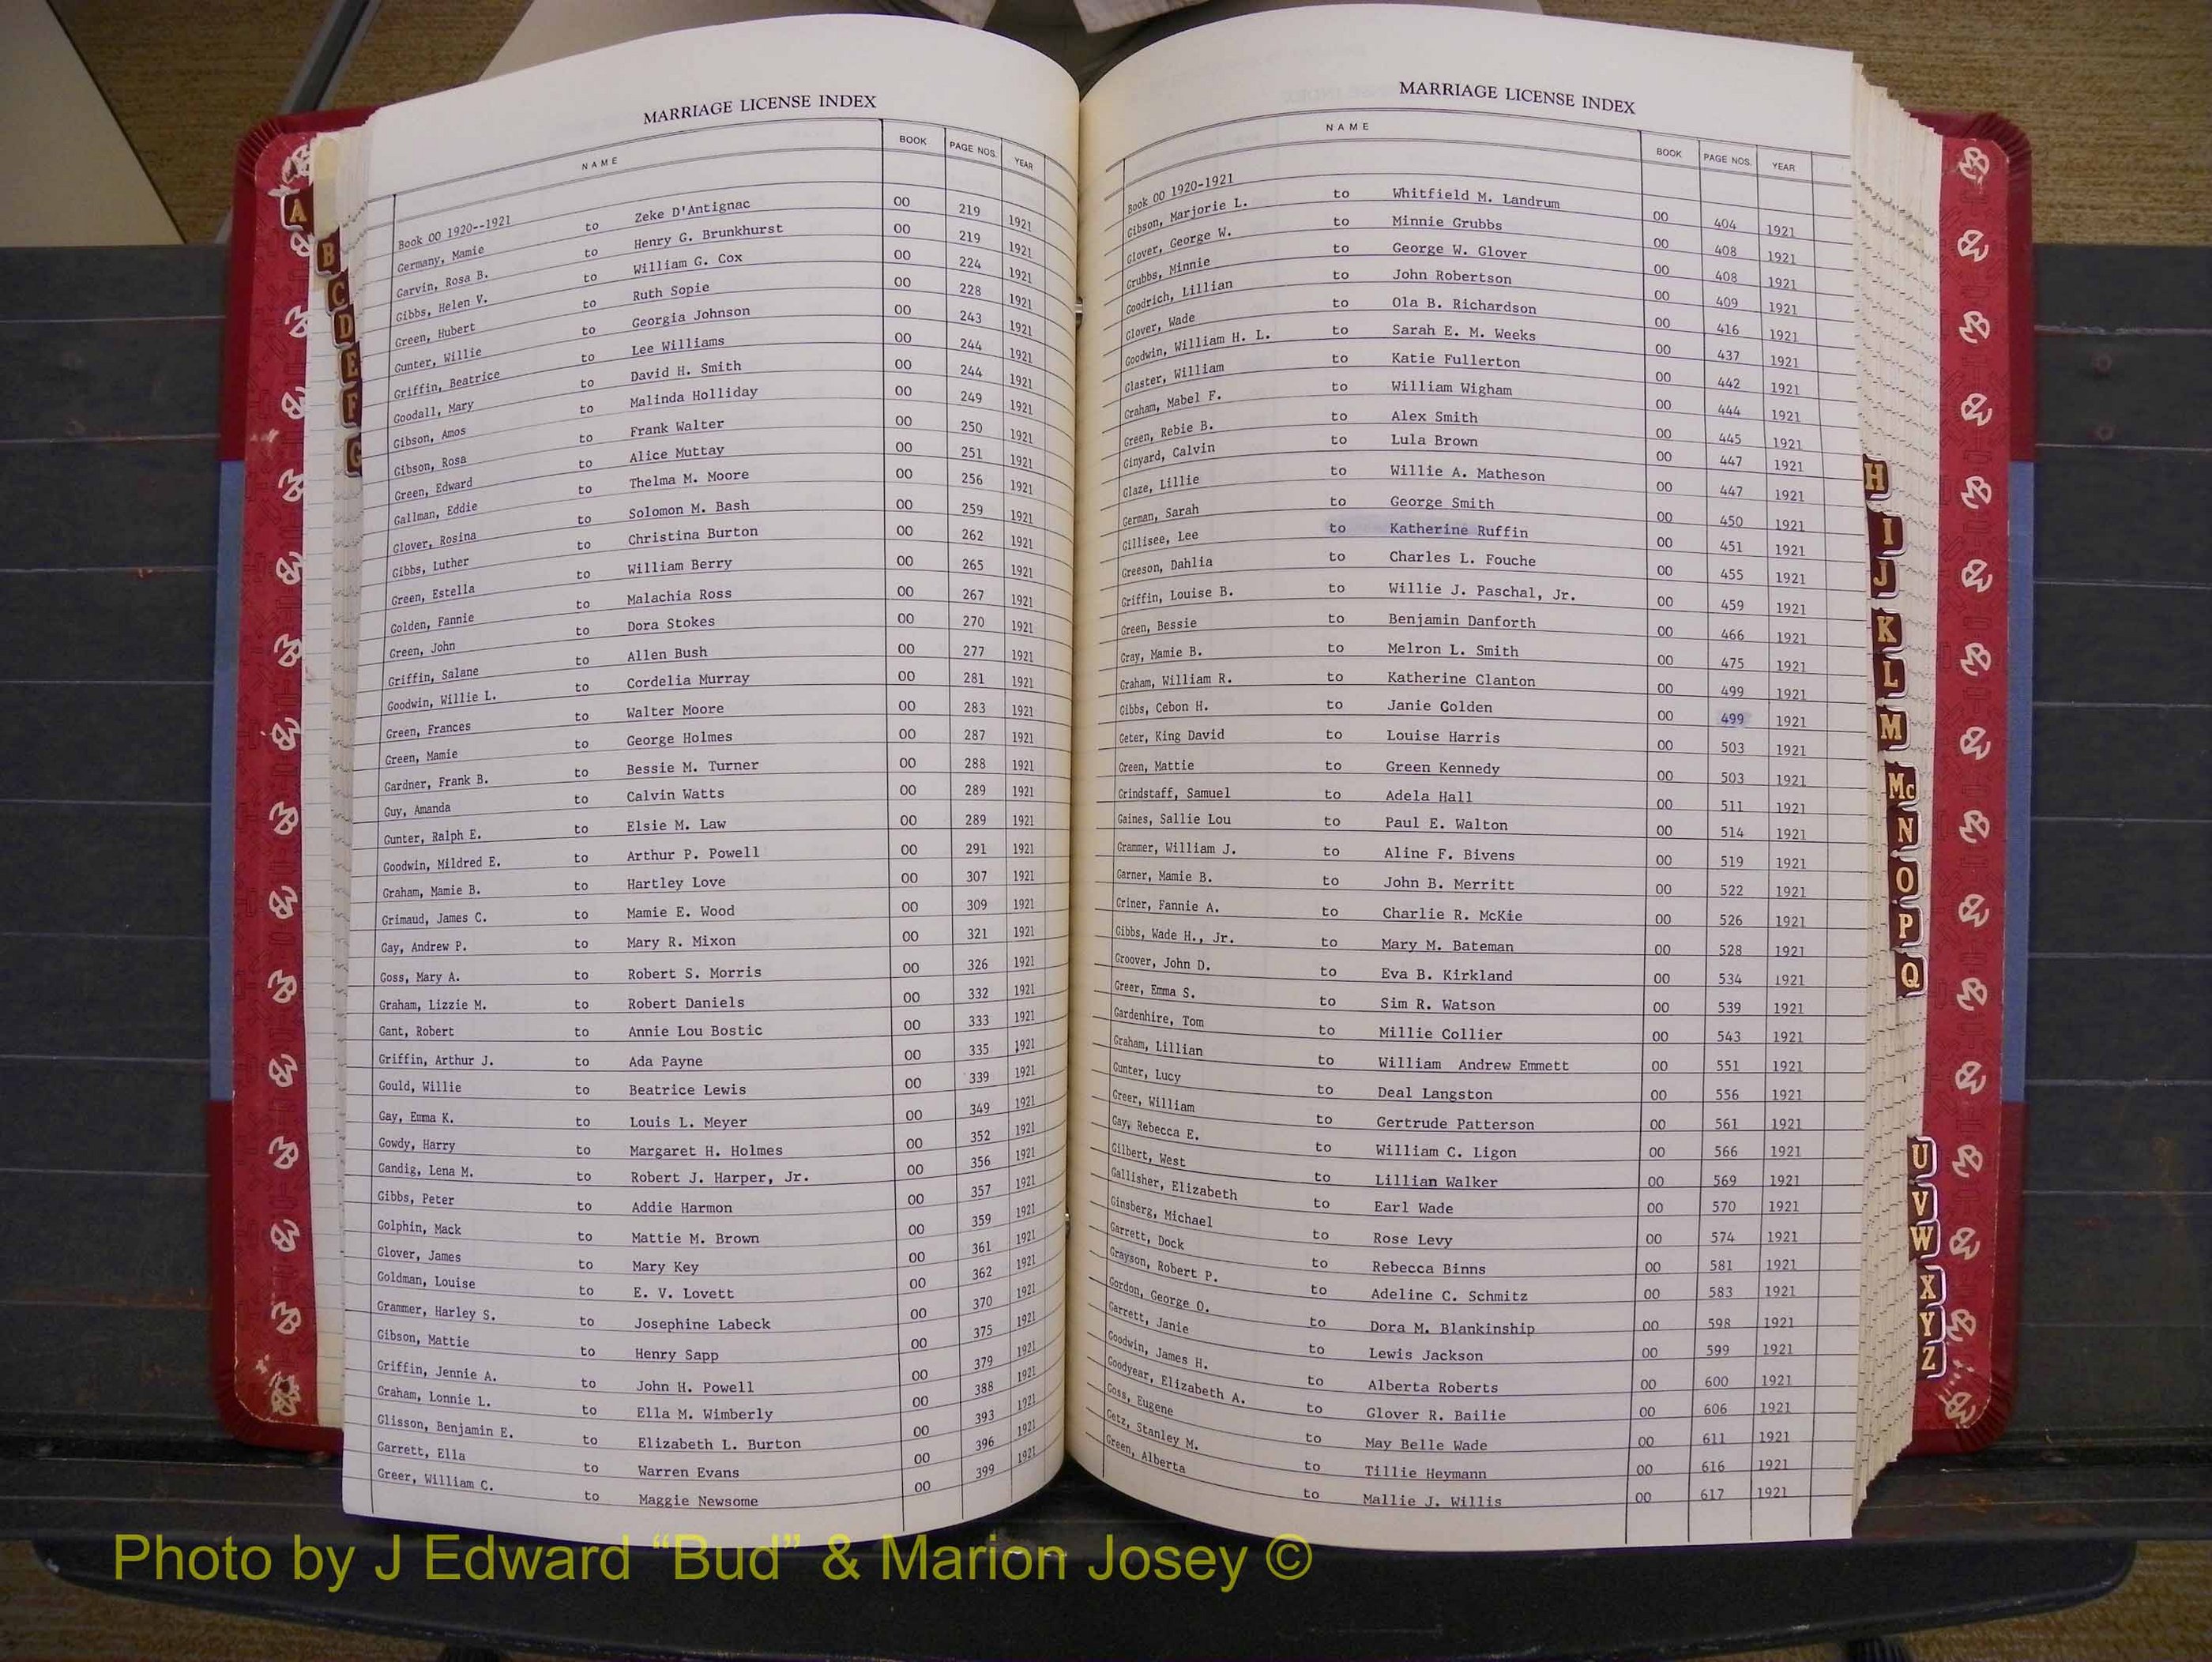 MARRIAGE LICENSE INDEX
NAME BOOK PAGE NOS. YEAR
Book 00 1920--1921
Germany, Mamie to Zeke D'Antignac 00 219 1921
Garvin, Rosa B. to Henry G. Brunkhurst 00 219 1921
Gibbs, Helen V. to William G. Cox 00 224 1921
Green, Hubert to Ruth Sopie 00 228 1921
Gunter, Willie to Georgia Johnson 00 243 1921
Griffin, Beatrice to Lee Williams 00 244 1921
Goodall, Mary to David H. Smith 00 244 1921
Gibson, Amos to Malinda Holliday 00 249 1921
Gibson, Rosa to Frank Walter 00 250 1921
Green, Edward to Alice Muttay 00 251 1921
Gallman, Eddie to Thelma M. Moore 00 256 1921
Glover, Rosina to Solomon M. Bash 00 259 1921
Gibbs, Luther to Christina Burton 00 262 1921
Green, Estella to William Berry 00 265 1921
Golden, Fannie to Malachia Ross 00 267 1921
Green, John to Dora Stokes 00 270 1921
Griffin, Salane to Allen Bush 00 277 1921
Goodwin, Willie L. to Cordelia Murray 00 281 1921
Green, Frances to Walter Moore 00 283 1921
Green, Mamie to George Holmes 00 287 1921
Gardner, Frank B. to Bessie M. Turner 00 288 1921
Guy, Amanda to Calvin Watts 00 289 1921
Gunter, Ralph E. to Elsie M. Law 00 289 1921
Goodwin, Mildred E. to Arthur P. Powell 00 291 1921
Graham, Mamie B. to Hartley Love 00 307 1921
Grimaud, James C. to Mamie E. Wood 00 309 1921
Gay, Andrew P. to Mary R. Mixon 00 321 1921
Goss, Mary A. to Robert S. Morris 00 326 1921
Graham, Lizzie M. to Robert Daniels 00 332 1921
Gant, Robert to Annie Lou Bostic 00 333 1921
Griffin, Arthur J. to Ada Payne 00 335 1921
Gould, Willie to Beatrice Lewis 00 339 1921
Gay, Emma K. to Louis L. Meyer 00 349 1921
Gowdy, Harry to Margaret H. Holmes 00 352 1921
Gandig, Lena M. to Robert J. Harper, Jr. 00 356 1921
Gibbs, Peter to Addie Harmon 00 357 1921
Golphin, Mack to Mattie M. Brown 00 359 1921
Glover, James to Mary Key 00 361 1921
Goldman, Louise to E. V. Lovett 00 362 1921
Grammer, Harley S. to Josephine Labeck 00 370 1921
Gibson, Mattie to Henry Sapp 00 375 1921
Griffin, Jennie A. to John H. Powell 00 379 1921
Graham, Lonnie L. to Ella M. Wimberly 00 388 1921
Glisson, Benjamin E. to Elizabeth L. Burton 00 393 1921
Garrett, Ella to Warren Evans 00 396 1921
Greer, William C. to Maggie Newsome 00 399 1921
MARRIAGE LICENSE INDEX
NAME BOOK PAGE NOS. YEAR
Book 00 1920-1921
Gibson, Marjorie L. to Whitfield M. Landrum 00 404 1921
Glover, George W. to Minnie Grubbs 00 408 1921
Grubbs, Minnie to George W. Glover 00 408 1921
Goodrich, Lillian to John Robertson 00 409 1921
Glover, Wade to Ola B. Richardson 00 416 1921
Goodwin, William H. L. to Sarah E. M. Weeks 00 437 1921
Glaster, William to Katie Fullerton 00 442 1921
Graham, Mabel F. to William Wigham 00 444 1921
Green, Rebie B. to Alex Smith 00 445 1921
Ginyard, Calvin to Lula Brown 00 447 1921
Glaze, Lillie to Willie A. Matheson 00 447 1921
German, Sarah to George Smith 00 450 1921
Gillisee, Lee to Katherine Ruffin 00 451 1921
Greeson, Dahlia to Charles L. Fouche 00 455 1921
Griffin, Louise B. to Willie J. Paschal, Jr. 00 459 1921
Green, Bessie to Benjamin Danforth 00 466 1921
Gray, Mamie B. to Melron L. Smith 00 475 1921
Graham, William R. to Katherine Clanton 00 499 1921
Gibbs, Cebon H. to Janie Golden 00 499 1921
Geter, King David to Louise Harris 00 503 1921
Green, Mattie to Green Kennedy 00 503 1921
Grindstaff, Samuel to Adela Hall 00 511 1921
Gaines, Sallie Lou to Paul E. Walton 00 514 1921
Grammer, William J. to Aline F. Bivens 00 519 1921
Garner, Mamie B. to John B. Merritt 00 522 1921
Griner, Fannie A. to Charlie R. McKie 00 526 1921
Gibbs, Wade H., Jr. to Mary M. Bateman 00 528 1921
Groover, John D. to Eva B. Kirkland 00 534 1921
Greer, Emma S. to Sim R. Watson 00 539 1921
Gardenhire, Tom to Millie Collier 00 543 1921
Graham, Lillian to William Andrew Emmett 00 551 1921
Gunter, Lucy to Deal Langston 00 556 1921
Greer, William to Gertrude Patterson 00 561 1921
Gay, Rebecca E. to William C. Ligon 00 566 1921
Gilbert, West to Lillian Walker 00 569 1921
Gallisher, Elizabeth to Earl Wade 00 570 1921
Ginsberg, Michael to Rose Levy 00 574 1921
Garrett, Dock to Rebecca Binns 00 581 1921
Grayson, Robert P. to Adeline C. Schmitz 00 583 1921
Gordon, George O. to Dora M. Blankinship 00 598 1921
Garrett, Janie to Lewis Jackson 00 599 1921
Goodwin, James H. to Alberta Roberts 00 600 1921
Goodyear, Elizabeth A. to Glover R. Bailie 00 606 1921
Goss, Eugene to May Belle Wade 00 611 1921
Getz, Stanley M. to Tillie Heymann 00 616 1921
Green, Alberta to Mallie J. Willis 00 617 1921
A
B
C
D
E
F
G
H
I
J
K
L
M
Mc
N
O
P
Q
U
V
W
X
Y
Z
Photo by J Edward “Bud” & Marion Josey ©